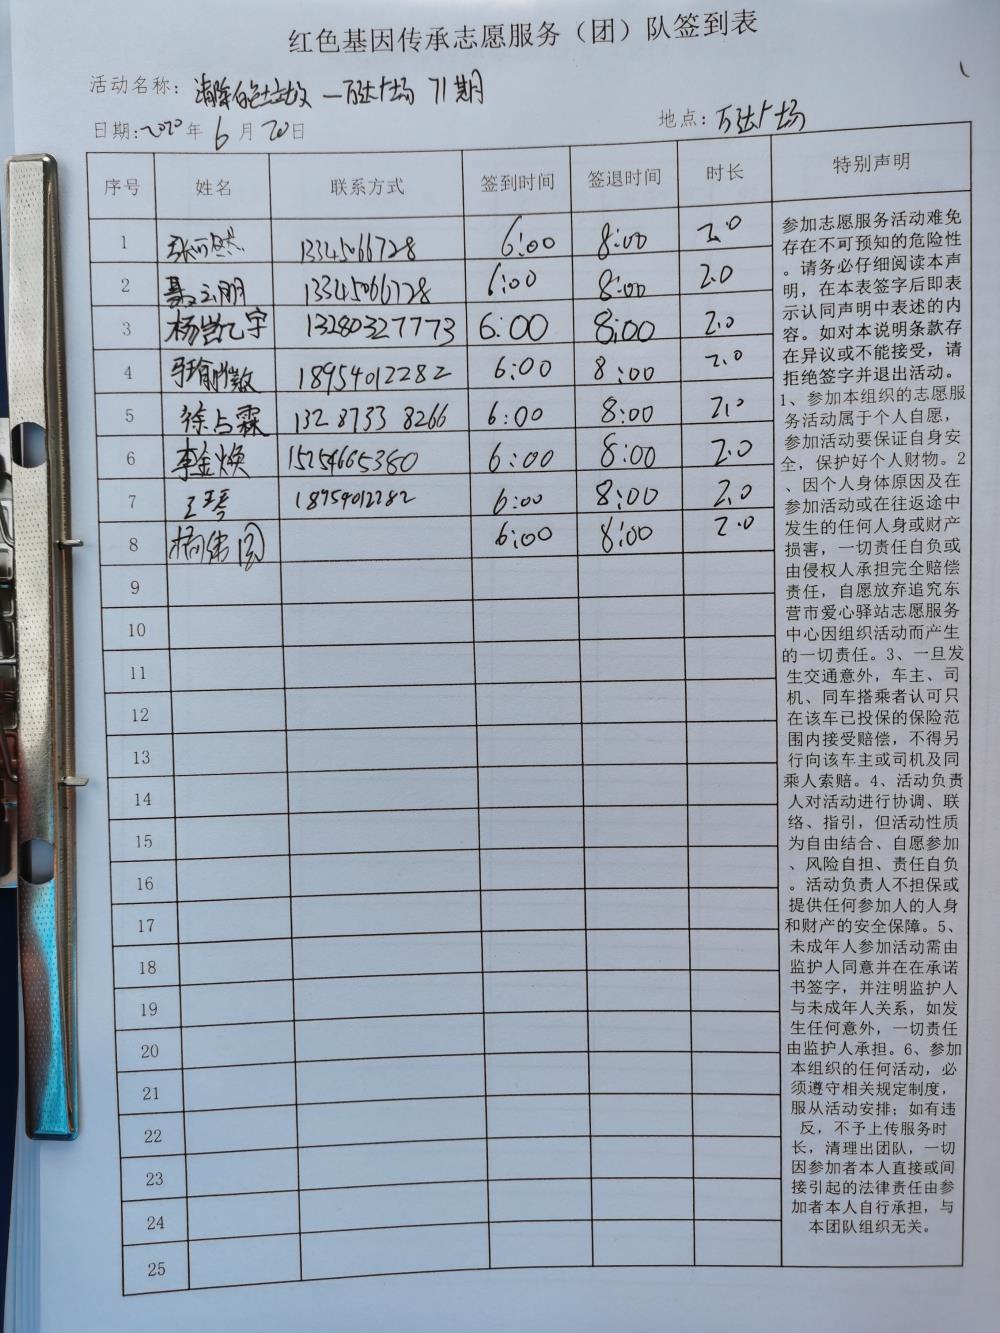 红色基因传承志愿服务（团）队签到表
活动名称：清除白色垃圾—万达广场 71期
日期：2020年6月20日
地点：万达广场
序号 姓名 联系方式 签到时间 签退时间 时长 特别声明
1 13345066728 6:00 8:00 2.0
2 13345066728 6:00 8:00 2.0
3 13280327773 6:00 8:00 2.0
4 18954012282 6:00 8:00 2.0
5 徐占霖 132 8733 8266 6:00 8:00 2.0
6 李金焕 15254665380 6:00 8:00 2.0
7 王琴 18954012282 6:00 8:00 2.0
8 杨伟国 6:00 8:00 2.0
9
10
11
12
13
14
15
16
17
18
19
20
21
22
23
24
25
参加志愿服务活动难免
存在不可预知的危险性
。请务必仔细阅读本声
明，在本表签字后即表
示认同声明中表述的内
容。如对本说明条款存
在异议或不能接受，请
拒绝签字并退出活动。
1、参加本组织的志愿服
务活动属于个人自愿，
参加活动要保证自身安
全，保护好个人财物。2
、因个人身体原因及在
参加活动或在往返途中
发生的任何人身或财产
损害，一切责任自负或
由侵权人承担完全赔偿
责任，自愿放弃追究东
营市爱心驿站志愿服务
中心因组织活动而产生
的一切责任。3、一旦发
生交通意外，车主、司
机、同车搭乘者认可只
在该车已投保的保险范
围内接受赔偿，不得另
行向该车主或司机及同
乘人索赔。4、活动负责
人对活动进行协调、联
络、指引，但活动性质
为自由结合、自愿参加
、风险自担、责任自负
。活动负责人不担保或
提供任何参加人的人身
和财产的安全保障。5、
未成年人参加活动需由
监护人同意并在在承诺
书签字，并注明监护人
与未成年人关系，如发
生任何意外，一切责任
由监护人承担。6、参加
本组织的任何活动，必
须遵守相关规定制度，
服从活动安排；如有违
反，不予上传服务时
长，清理出团队，一切
因参加者本人直接或间
接引起的法律责任由参
加者本人自行承担，与
本团队组织无关。